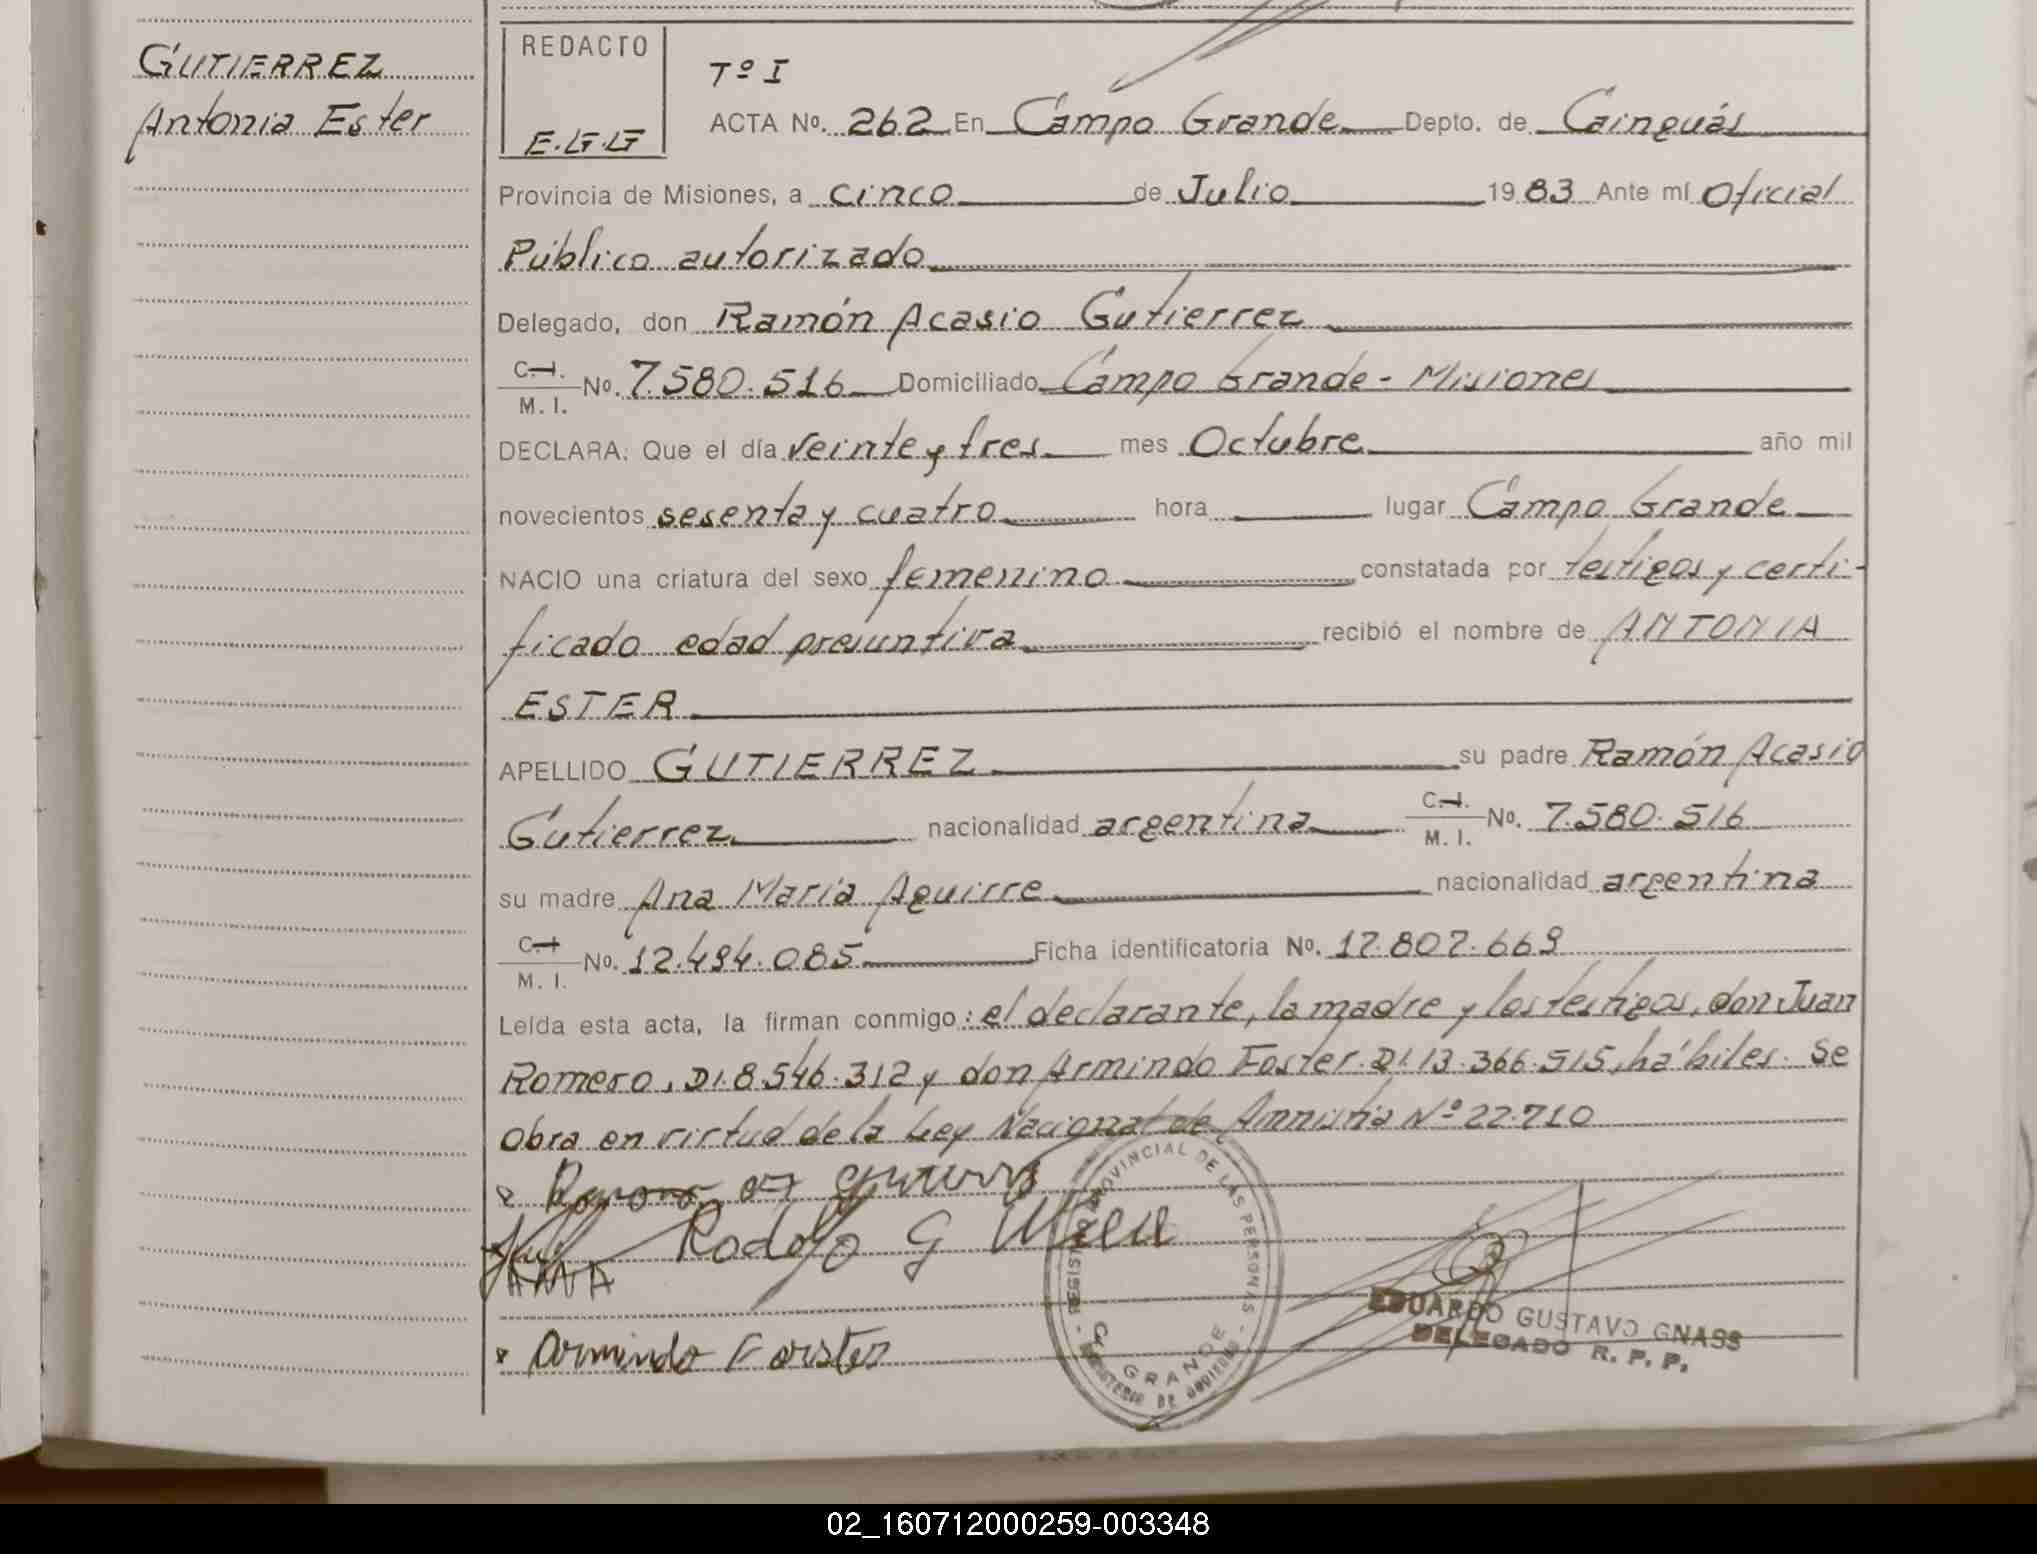 GUTIERREZ
Antonia Ester
REDACTO
E.G.G
Tº I
ACTA Nº. 262 En Campo Grande Depto. de Cainguás
Provincia de Misiones, a cinco de Julio 1983 Ante mí Oficial
Público autorizado
Delegado, don Ramón Acasio Gutierrez
C.I.
M. I. Nº. 7.580.516 Domiciliado Campo Grande - Misiones
DECLARA: Que el día veinte y tres mes Octubre año mil
novecientos sesenta y cuatro hora lugar Campo Grande
NACIO una criatura del sexo femenino constatada por testigos y certi-
ficado edad presuntiva recibió el nombre de ANTONIA
ESTER
APELLIDO GUTIERREZ su padre Ramón Acasio
Gutierrez nacionalidad argentina C.I. M. I. Nº. 7.580.516
su madre Ana María Aguirre nacionalidad argentina
C.I.
M. I. Nº. 12.494.085 Ficha identificatoria Nº. 17.807.669
Leída esta acta, la firman conmigo: el declarante, la madre y los testigos, don Juan
Romero, DI. 8.546.312 y don Armindo Foster DI. 13.366.515, hábiles. Se
Obra en virtud de la Ley Nacional de Amnistía Nº 22.710
Rodolfo G
ANA
Armindo Forster
REGISTRO PROVINCIAL DE LAS PERSONAS
C. GRANDE
MINISTERIO DE GOBIERNO
EDUARDO GUSTAVO GNASS
DELEGADO R. P. P.
02_160712000259-003348